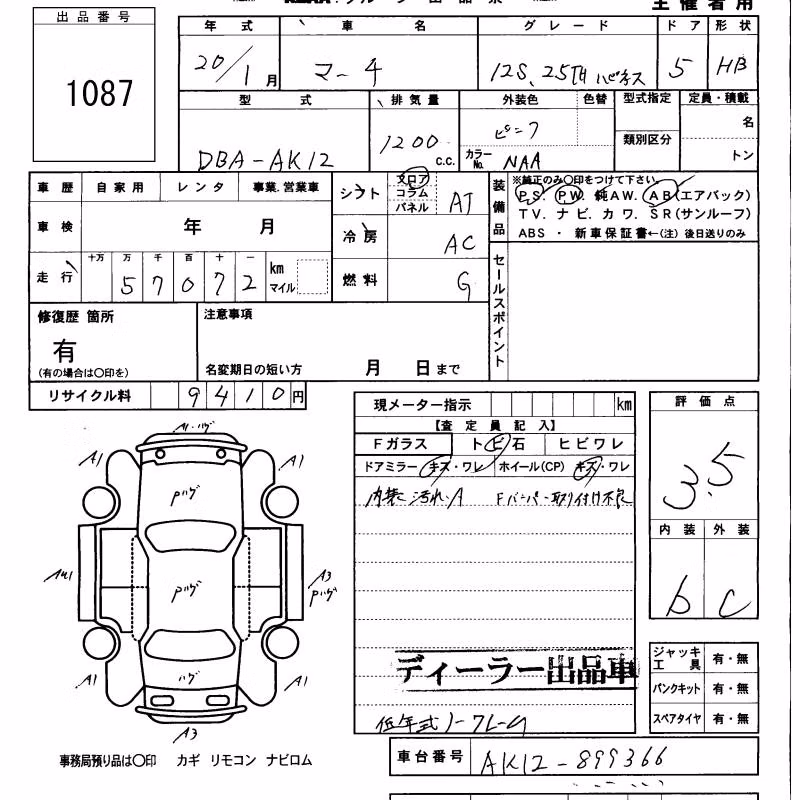 主催者用
出品番号
1087
年式 車名 グレード ドア 形状
20/1月 マーチ 12S, 25TH ハピネス 5 HB
型式 排気量 外装色 色替 型式指定 定員・積載
DBA-AK12 1200 c.c. ピンク カラーNo. NAA 類別区分 名
トン
車歴 自家用 レンタ 事業.営業車
車検 年 月
走行 十万 万 千 百 十 一 km
57072 マイル
シフト フロア コラム パネル AT
冷房 AC
燃料 G
装備品 ※純正のみ〇印をつけて下さい。
P,S. P,W. 純AW. AB(エアバック)
TV. ナビ. カワ. SR(サンルーフ)
ABS ・ 新車保証書←(注) 後日送りのみ
セールスポイント
修復歴 箇所
有
(有の場合は〇印を)
注意事項
名変期日の短い方 月 日まで
リサイクル料 9410円
現メーター指示 km
【査定員記入】
Fガラス トビ石 ヒビワレ
ドアミラー キズ・ワレ ホイール(CP) キズ・ワレ
内装 汚れ.A Fバンパー取り付け不良
ディーラー出品車
低年式
評価点
3.5
内装 外装
b C
ジャッキ工具 有・無
パンクキット 有・無
スペアタイヤ 有・無
車台番号 AK12-899366
A1・ハゲ
A1 A1
Pハゲ
AU1 Pハゲ A3 Pハゲ
ハゲ
A1 A1
A3
事務局預り品は〇印 カギ リモコン ナビロム